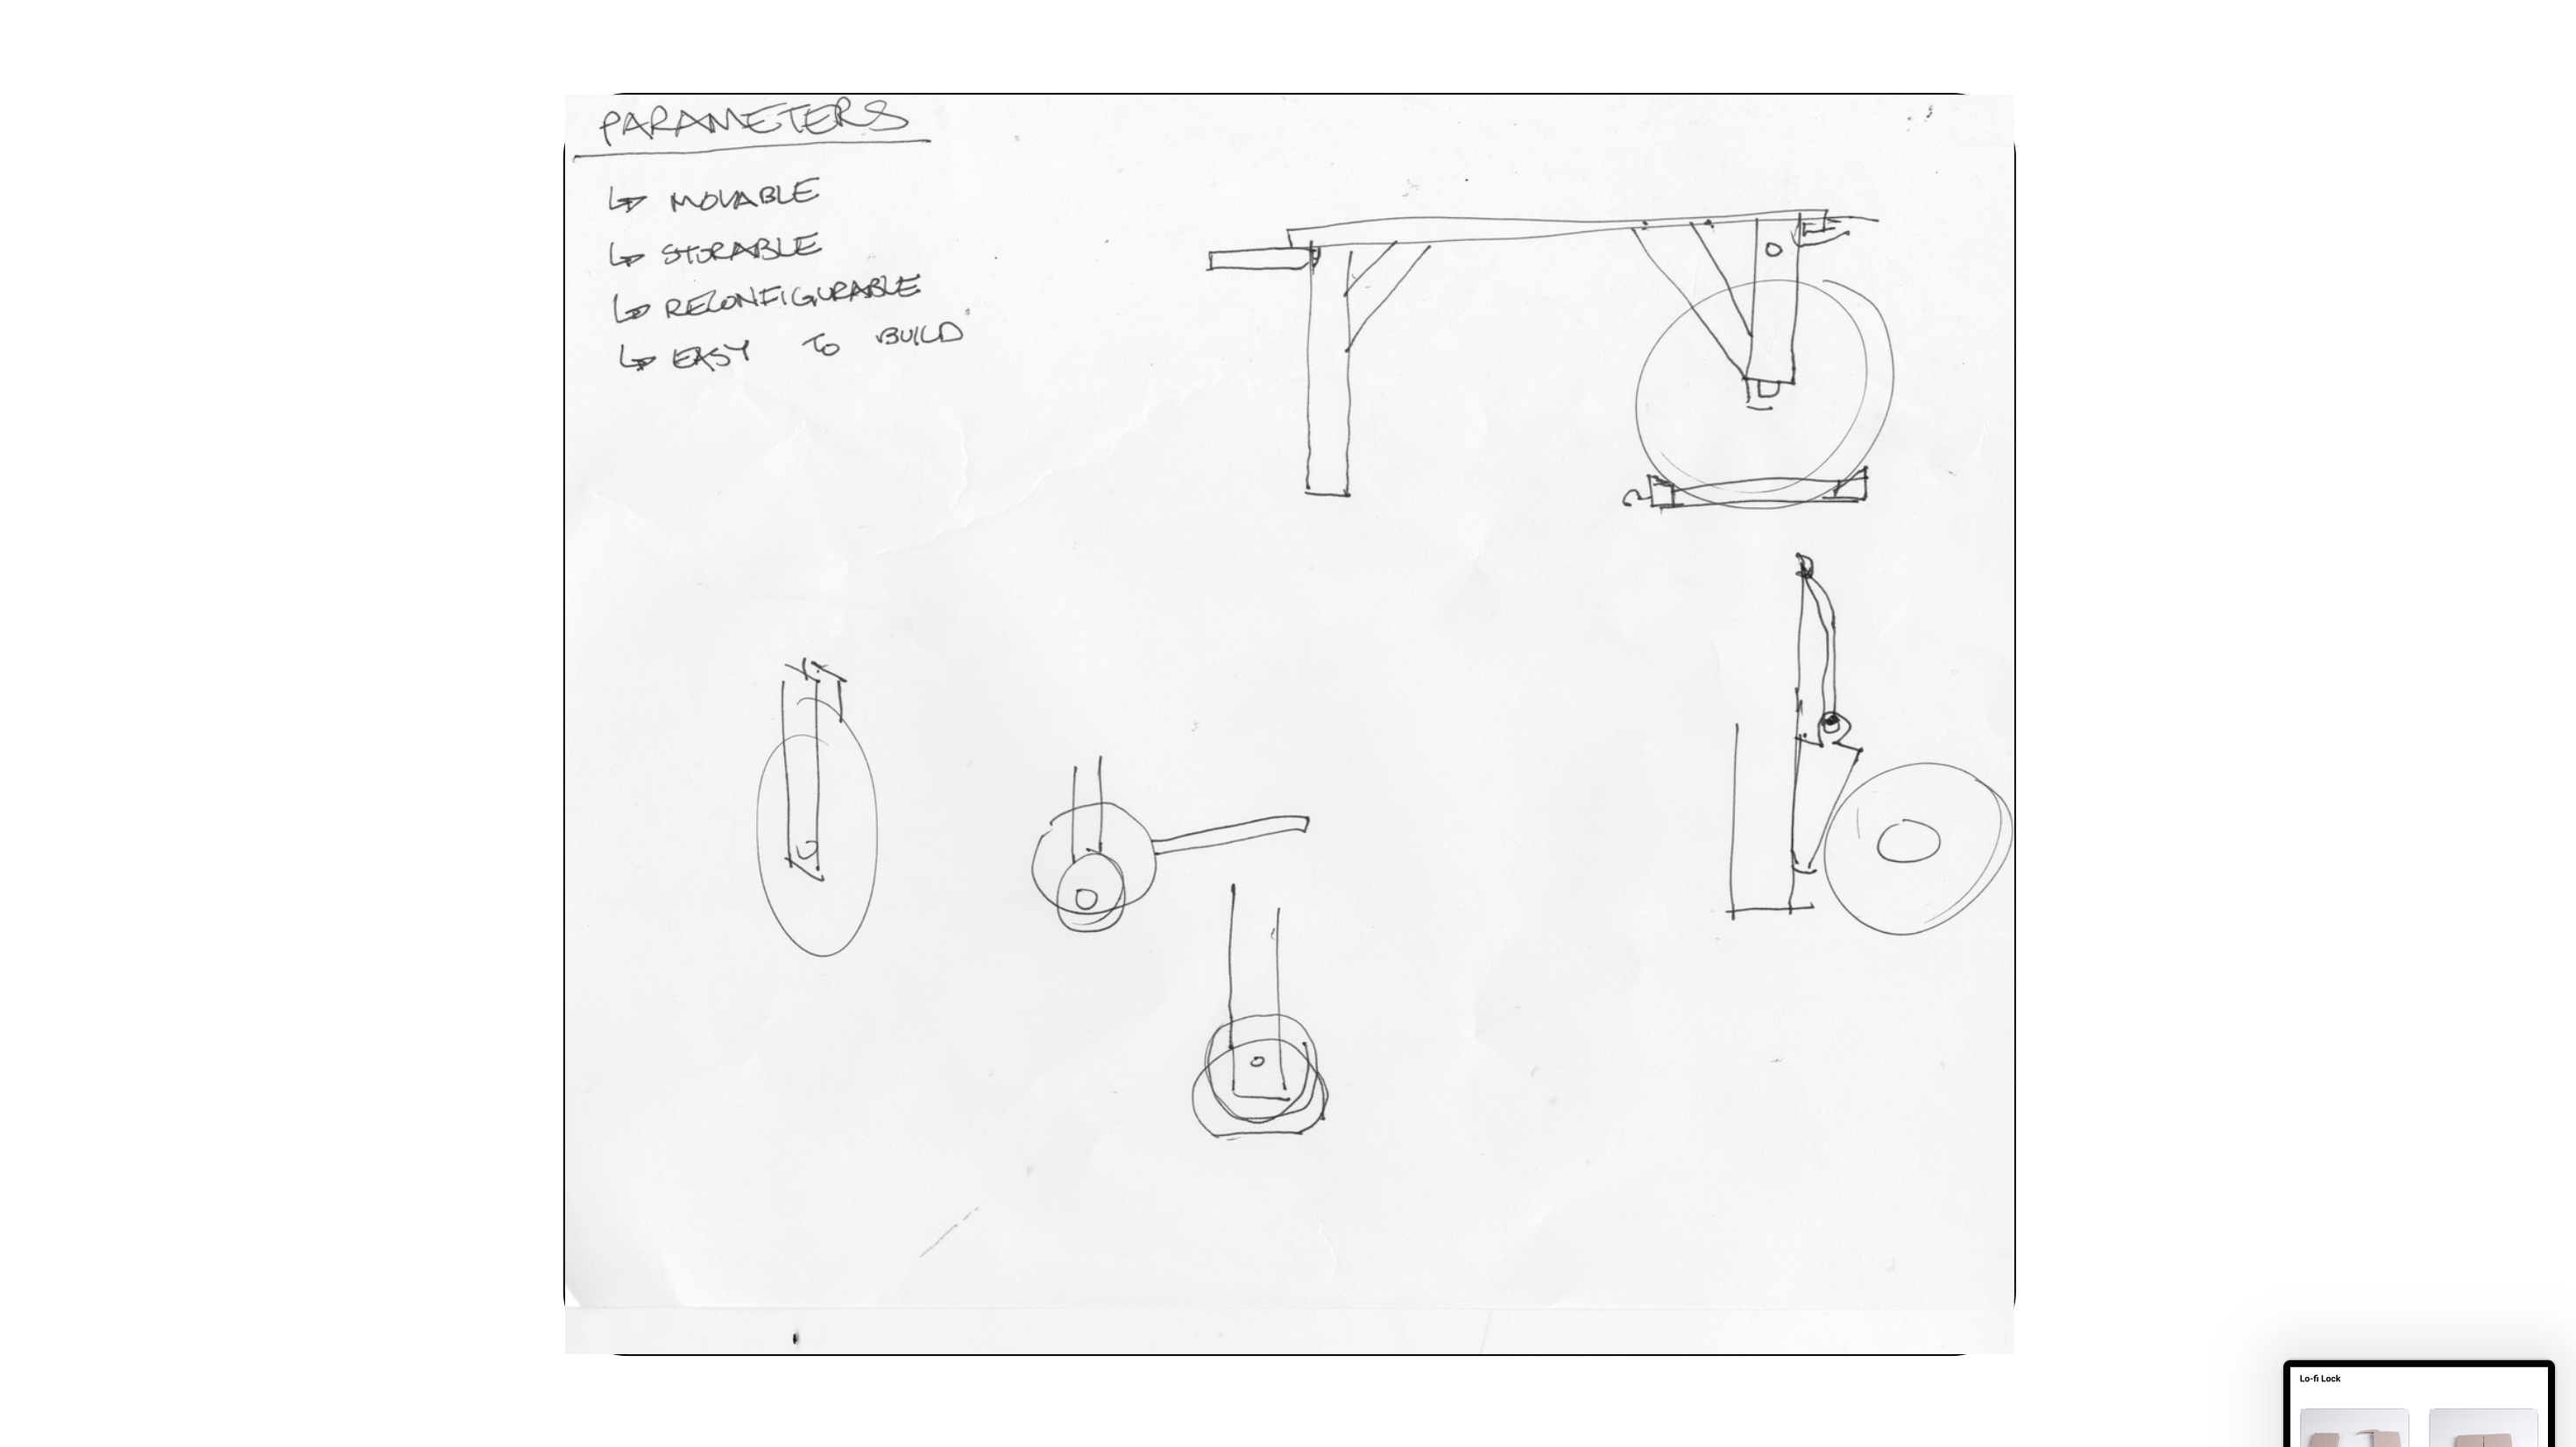 PARAMETERS
↳ MOVABLE
↳ STORABLE
↳ RECONFIGURABLE
↳ EASY TO BUILD
Lo-fi Lock